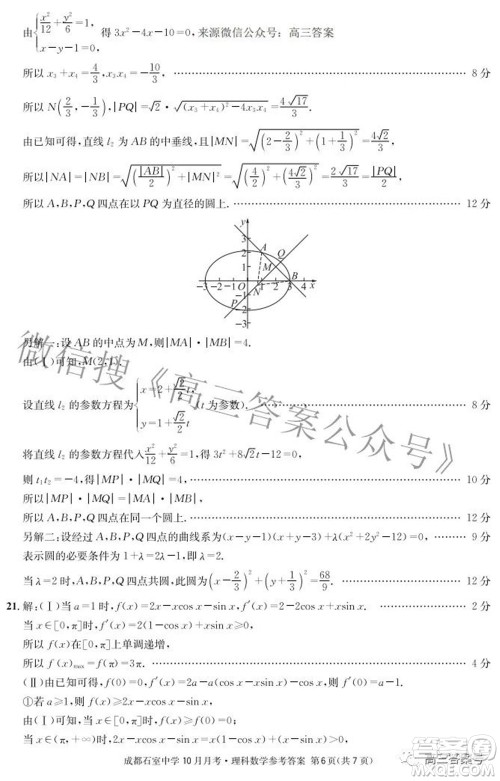 由{x²/12+y²/6=1, x-y-1=0, 得 3x²-4x-10=0, 来源微信公众号：高三答案
所以 x₃+x₄=4/3, x₃x₄=-10/3. …… 8分
所以 N(2/3, -1/3), |PQ|=√2·√((x₃+x₄)²-4x₃x₄)=4√17/3.
由已知可得, 直线 l₂ 为 AB 的中垂线, 且|MN|=√((2-2/3)²+(1+1/3)²)=4√2/3,
所以|NA|=|NB|=√((|AB|/2)²+|MN|²)=√((4/2)²+(4√2/3)²)=2√17/3=|PQ|/2,
所以 A,B,P,Q 四点在以 PQ 为直径的圆上. …… 12分
另解一：设 AB 的中点为 M, 则|MA|·|MB|=4.
由(Ⅰ)可知, M(2,1),
设直线 l₂ 的参数方程为{x=2+√2/2 t, y=1+√2/2 t (t 为参数). …… 8分
将直线 l₂ 的参数方程代入 x²/12+y²/6=1, 得 3t²+8√2t-12=0, …… 9分
则 t₁t₂=-4, 得|MP|·|MQ|=4, …… 10分
所以|MP|·|MQ|=|MA|·|MB|,
所以 A,B,P,Q 四点在同一个圆上. …… 12分
另解二：设经过 A,B,P,Q 的曲线系为(x-y-1)(x+y-3)+λ(x²/12+y²/6-1)=0, …… 9分
表示圆的必要条件为 1+λ=2-λ, …… 12分
当 λ=2 时, A,B,P,Q 四点共圆, 此圆为(x-2/3)²+(y+1/3)²=68/9. …… 12分
21. 解：(Ⅰ)当 a=1 时, f(x)=2x-xcos x-sin x, f′(x)=2-2cos x+xsin x. …… 2分
当 x∈[0,π]时, f′(x)=2(1-cos x)+xsin x≥0,
所以 f(x)在[0,π]上单调递增,
所以 f(x)max=f(π)=3π. …… 4分
(Ⅱ)由已知可得, f(0)=0, f′(x)=2a-a(cos x-xsin x)-cos x,
①若 a≥1, 则 f(x)≥2x-cos x-xsin x,
由(Ⅰ)可知, 当 x∈[0,π]时, 2(1-cos x)+xsin x≥0,
成都石室中学 10月月考·理科数学参考答案 第6页(共7页)
高三答案号
微信搜《高三答案公众号》
y
x
3
2
1
-1
-2
-3
-3 -2 -1 O 1 2 3
A
Q
M
B
N
P